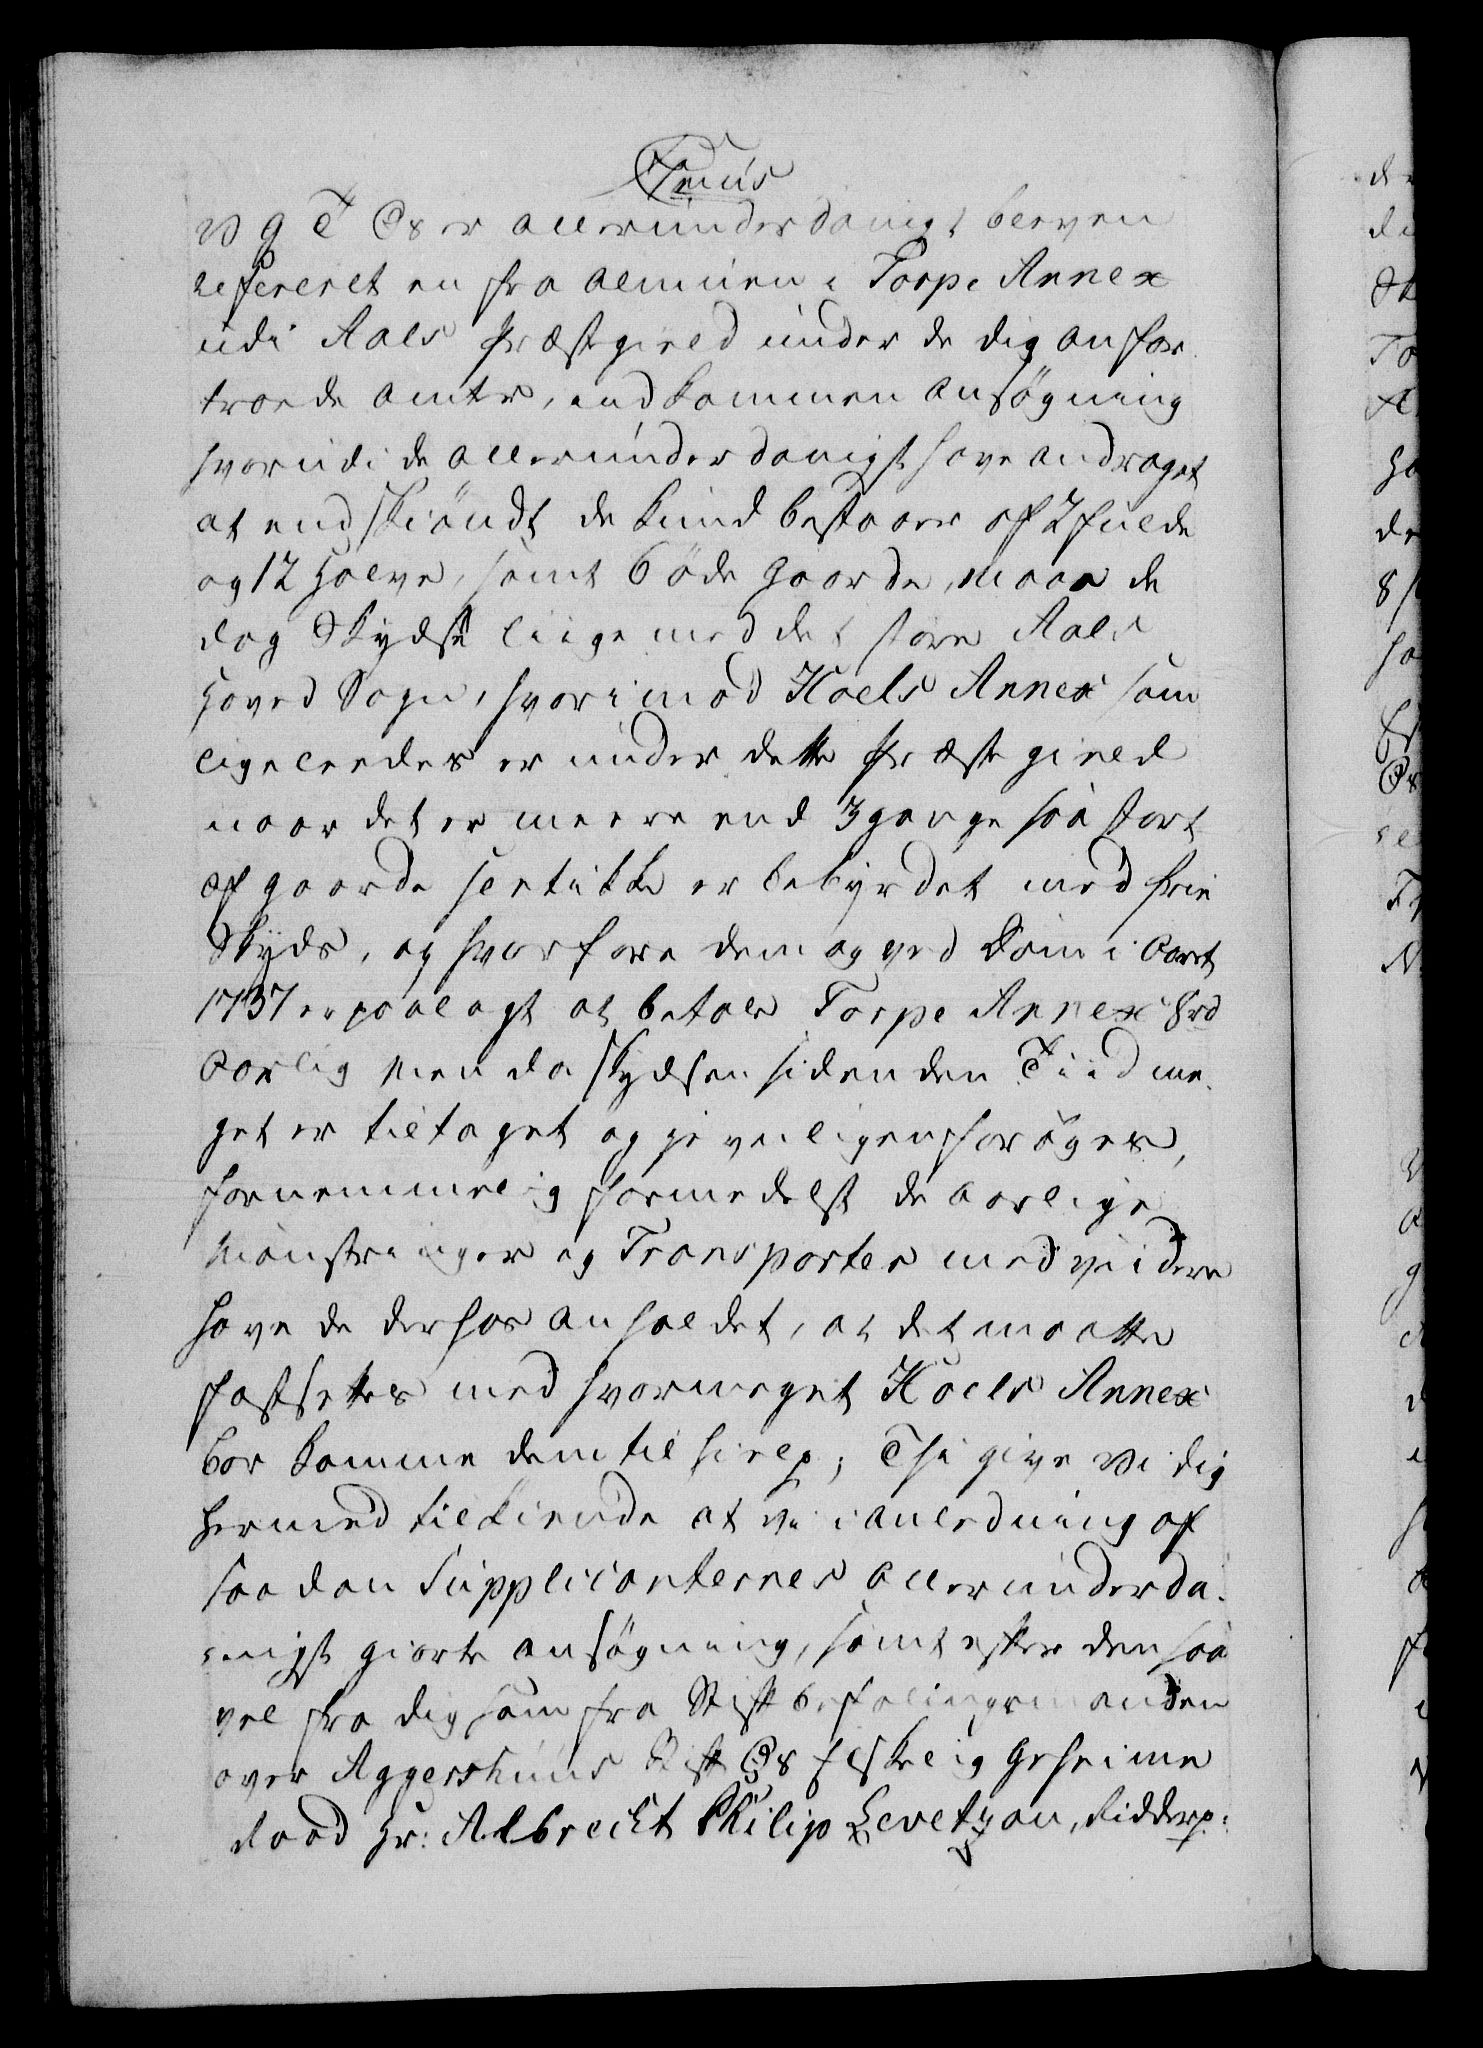 V G T Os er allerunderdanigst bleven
refereret en fra Almuen i Torpe Annex
udi Aals Præstegield under de dig anfor
troede Amter, indkommen ansøgning
hvorudi de allerunderdanigst have andraget
at endskiøndt de kund bestaaer af 2 fulde
og 12 Halve, samt 6 öde Gaarde, maae de
dog Skydse liige med det store Aals
Hoved Sogn, hvorimod Hoels Annex som
ligeleedes er under dette Præstegield
naar det er meere end 3 gange saa stort
af gaarde slet ikke er bebyrdet med frie
Skyds, og hvorfore dem og ved Dom i Aaret
1737 er paalagt at betale Torpe Annex 8 rd
Aarlig men da Skydsen siden den Tiid me
get er tiltaget og jevnligen forøges,
fornemmelig formedelst de aarlige
Mönstringer og Transporter med viidere
have de derhos anholdet, at det maatte
fastsettes med hvormeget Hoels Annex
bør komme dem til hielp; Thi give Vi dig
hermed tilkiende at vi i anledning af
saadan Supplicanternes allerunderda
nigst giorte ansøgning, samt efter den saa
vel fra dig som fra Stiftbefalingsmanden
over Aggershuus Stift Os Elskelig Geheime
Raad Hr: Albrecht Philip Levetzau, Ridder p: